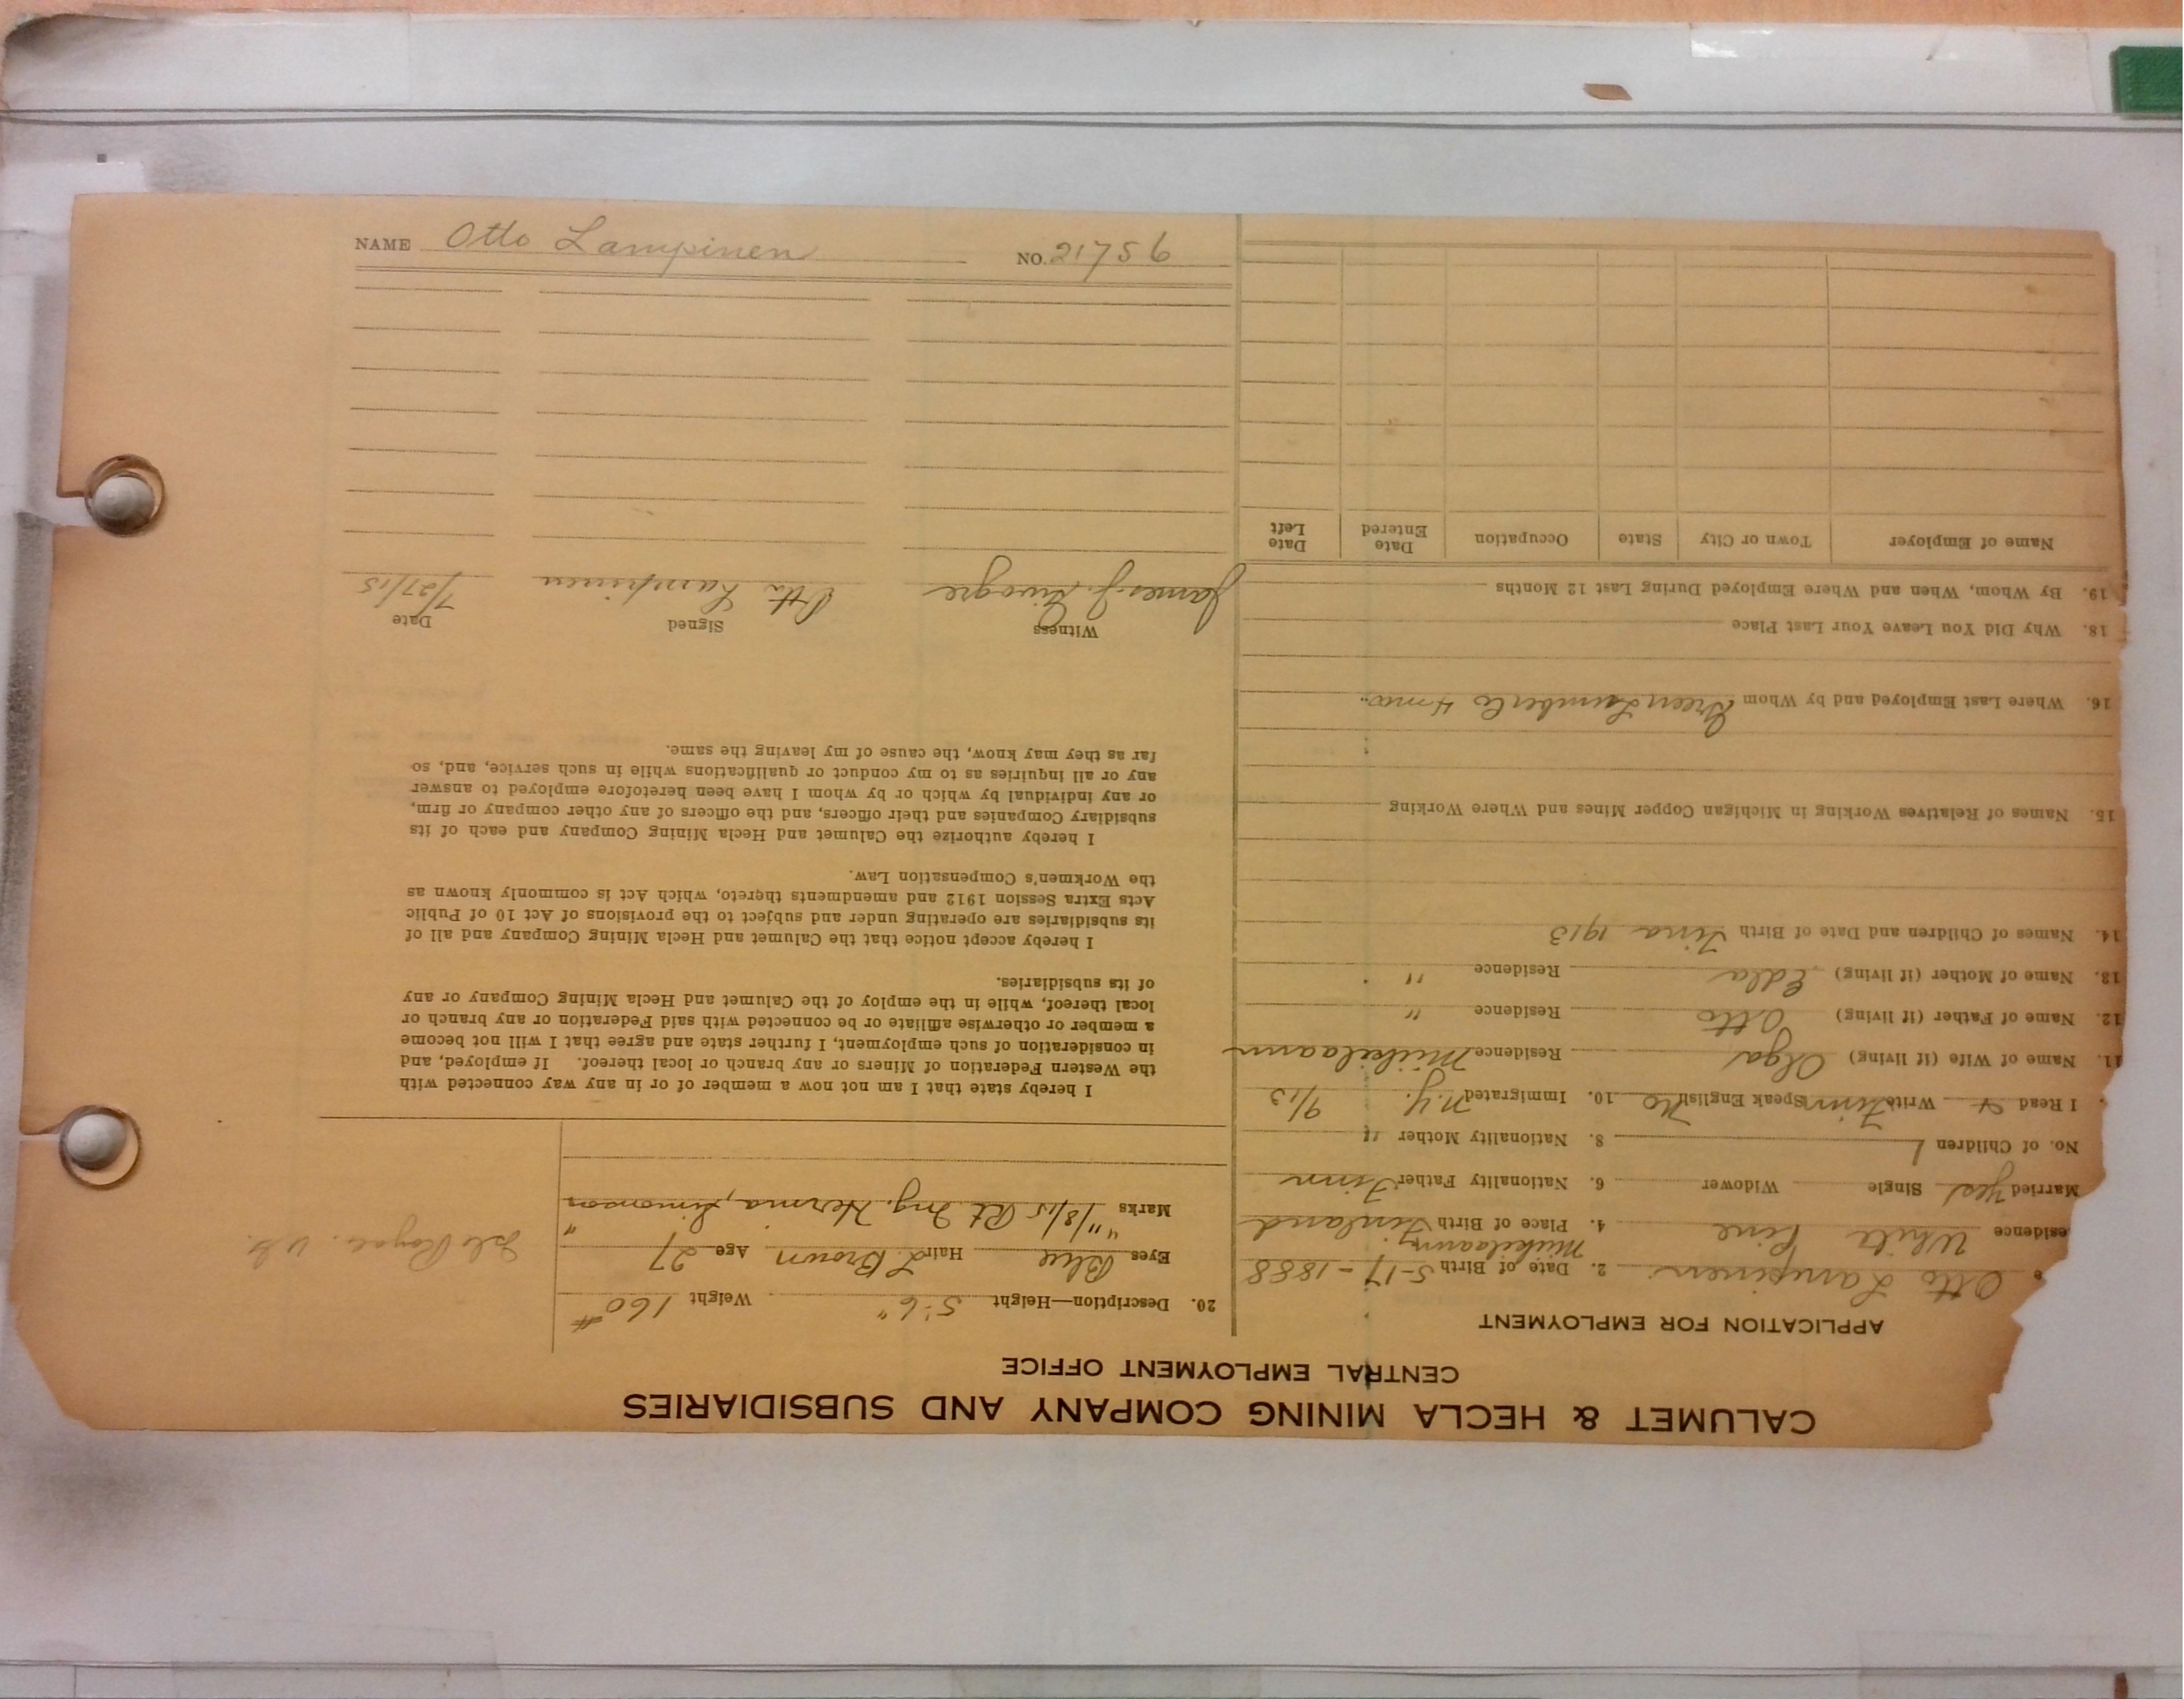 CALUMET & HECLA MINING COMPANY AND SUBSIDIARIES
CENTRAL EMPLOYMENT OFFICE
APPLICATION FOR EMPLOYMENT
e Otto Lampinen 2. Date of Birth 5-17-1888
Miikelaann
esidence White Pine 4. Place of Birth Finland
Married Yes Single Widower 6. Nationality Father Finn
No. of Children 1 8. Nationality Mother "
I Read & Write Finn Speak English No 10. Immigrated N.Y. 9/13
11. Name of Wife (if living) Olga Residence Miikelaann
12. Name of Father (if living) Otto Residence "
13. Name of Mother (if living) Edla Residence "
14. Names of Children and Date of Birth Fina 1913
15. Names of Relatives Working in Michigan Copper Mines and Where Working
16. Where Last Employed and by Whom Green Lumber Co 4 mo.
18. Why Did You Leave Your Last Place
19. By Whom, When and Where Employed During Last 12 Months
Name of Employer Town or City State Occupation Date Entered Date Left
20. Description—Height 5'-6" Weight 160#
Eyes Blue Hair L Brown Age 27
Marks "/8/15 Rt Ing. Hernia,
Isle Royale
I hereby state that I am not now a member of or in any way connected with
the Western Federation of Miners or any branch or local thereof. If employed, and
in consideration of such employment, I further state and agree that I will not become
a member or otherwise affiliate or be connected with said Federation or any branch or
local thereof, while in the employ of the Calumet and Hecla Mining Company or any
of its subsidiaries.
I hereby accept notice that the Calumet and Hecla Mining Company and all of
its subsidiaries are operating under and subject to the provisions of Act 10 of Public
Acts Extra Session 1912 and amendments thereto, which Act is commonly known as
the Workmen's Compensation Law.
I hereby authorize the Calumet and Hecla Mining Company and each of its
subsidiary Companies and their officers, and the officers of any other company or firm,
or any individual by which or by whom I have been heretofore employed to answer
any or all inquiries as to my conduct or qualifications while in such service, and, so
far as they may know, the cause of my leaving the same.
Witness Signed Date
James J. Otto Lampinen 7/27/15
NAME Otto Lampinen NO. 21756